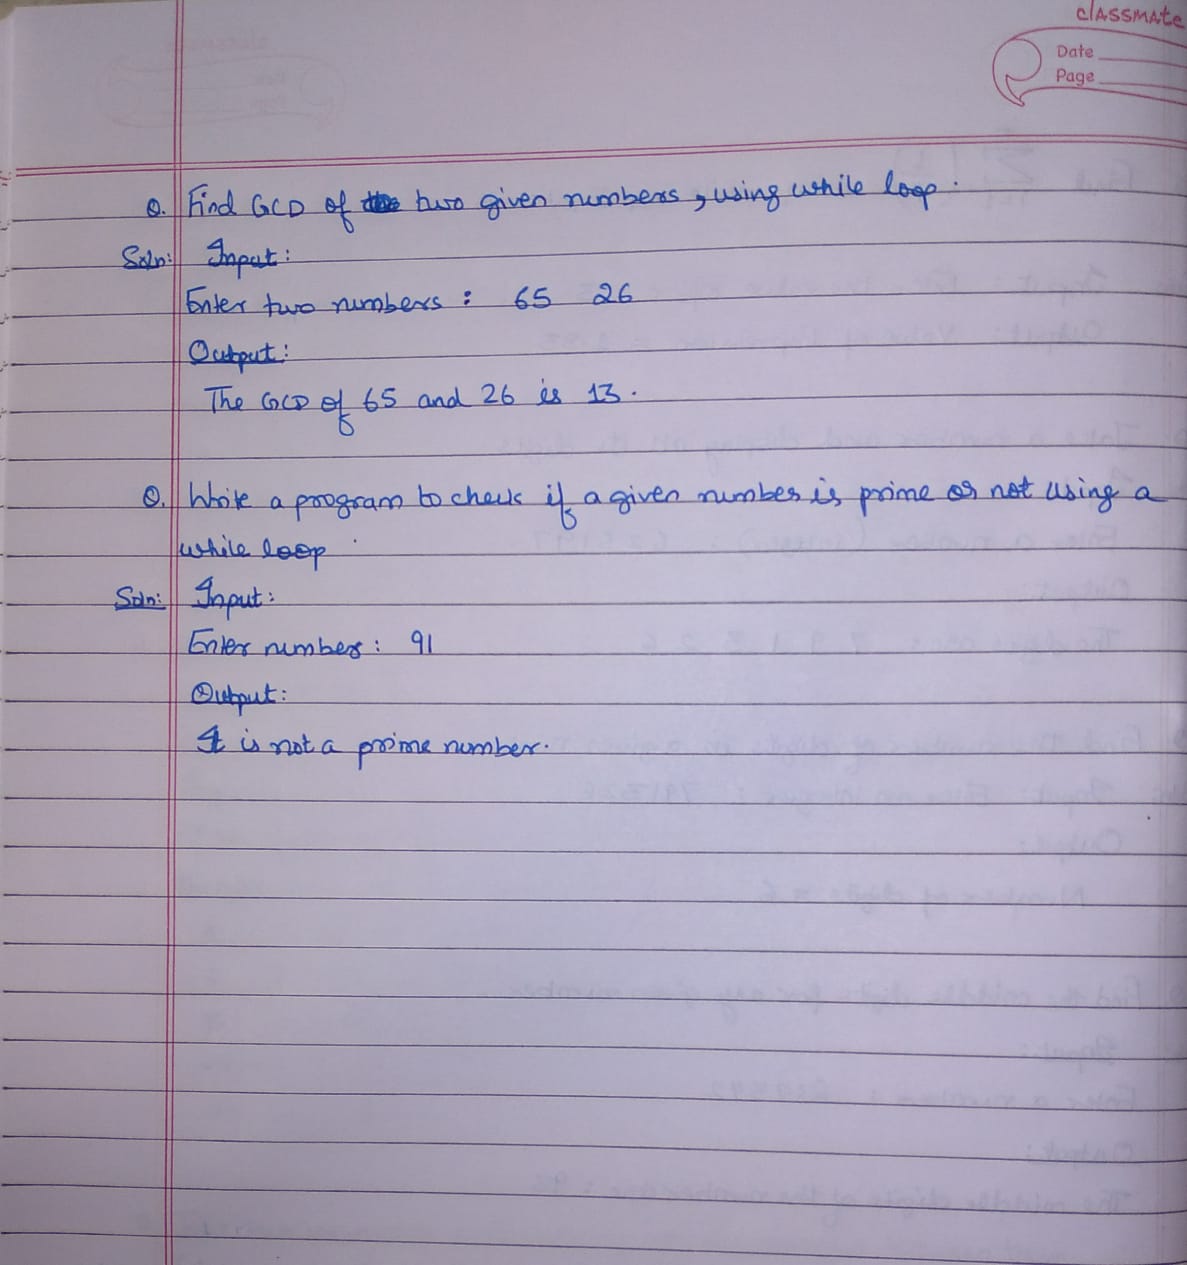 classmate
Date
Page
Q. Find GCD of two given numbers, using while loop.
Soln: Input:
Enter two numbers : 65 26
Output:
The GCD of 65 and 26 is 13.
Q. Write a program to check if a given number is prime or not using a
while loop
Soln: Input:
Enter number : 91
Output:
It is not a prime number.